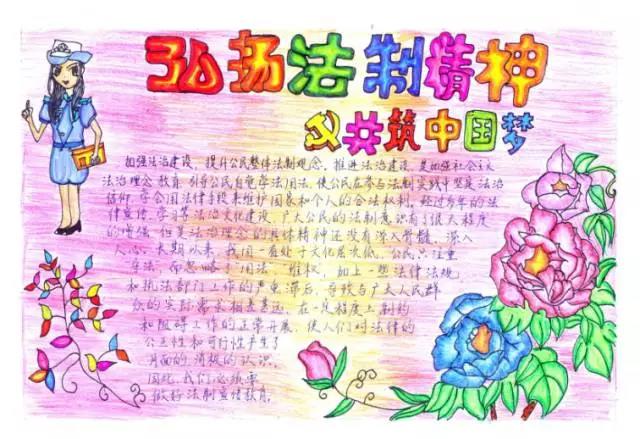 弘扬法制精神
共筑中国梦
加强法治建设，提升公民整体法制观念。推进法治建设，是加强社会主义
法治理念教育，引导公民自觉学法用法，使公民在参与法制实践中坚定法治
信仰，学会用法律手段来维护国家和个人的合法权利。经过多年的法
律宣传，学习等法治文化建设，广大公民的法制意识有了很大程度
的增强，但是法治理念的具体精神还没有深入骨髓，深入
人心。长期以来，我国一直处于文化层次低，公民只注重
守法，而忽略了用法，维权，加上一些法律法规，
和执法部门工作的严重滞后，导致与广大人民群
众的实际需求相差甚远，在一定程度上制约
和阻碍工作的正常开展，使人们对法律的
公正性和可行性产生了
片面的，消极的认识。
因此，我们必须要
做好法制宣传教育。